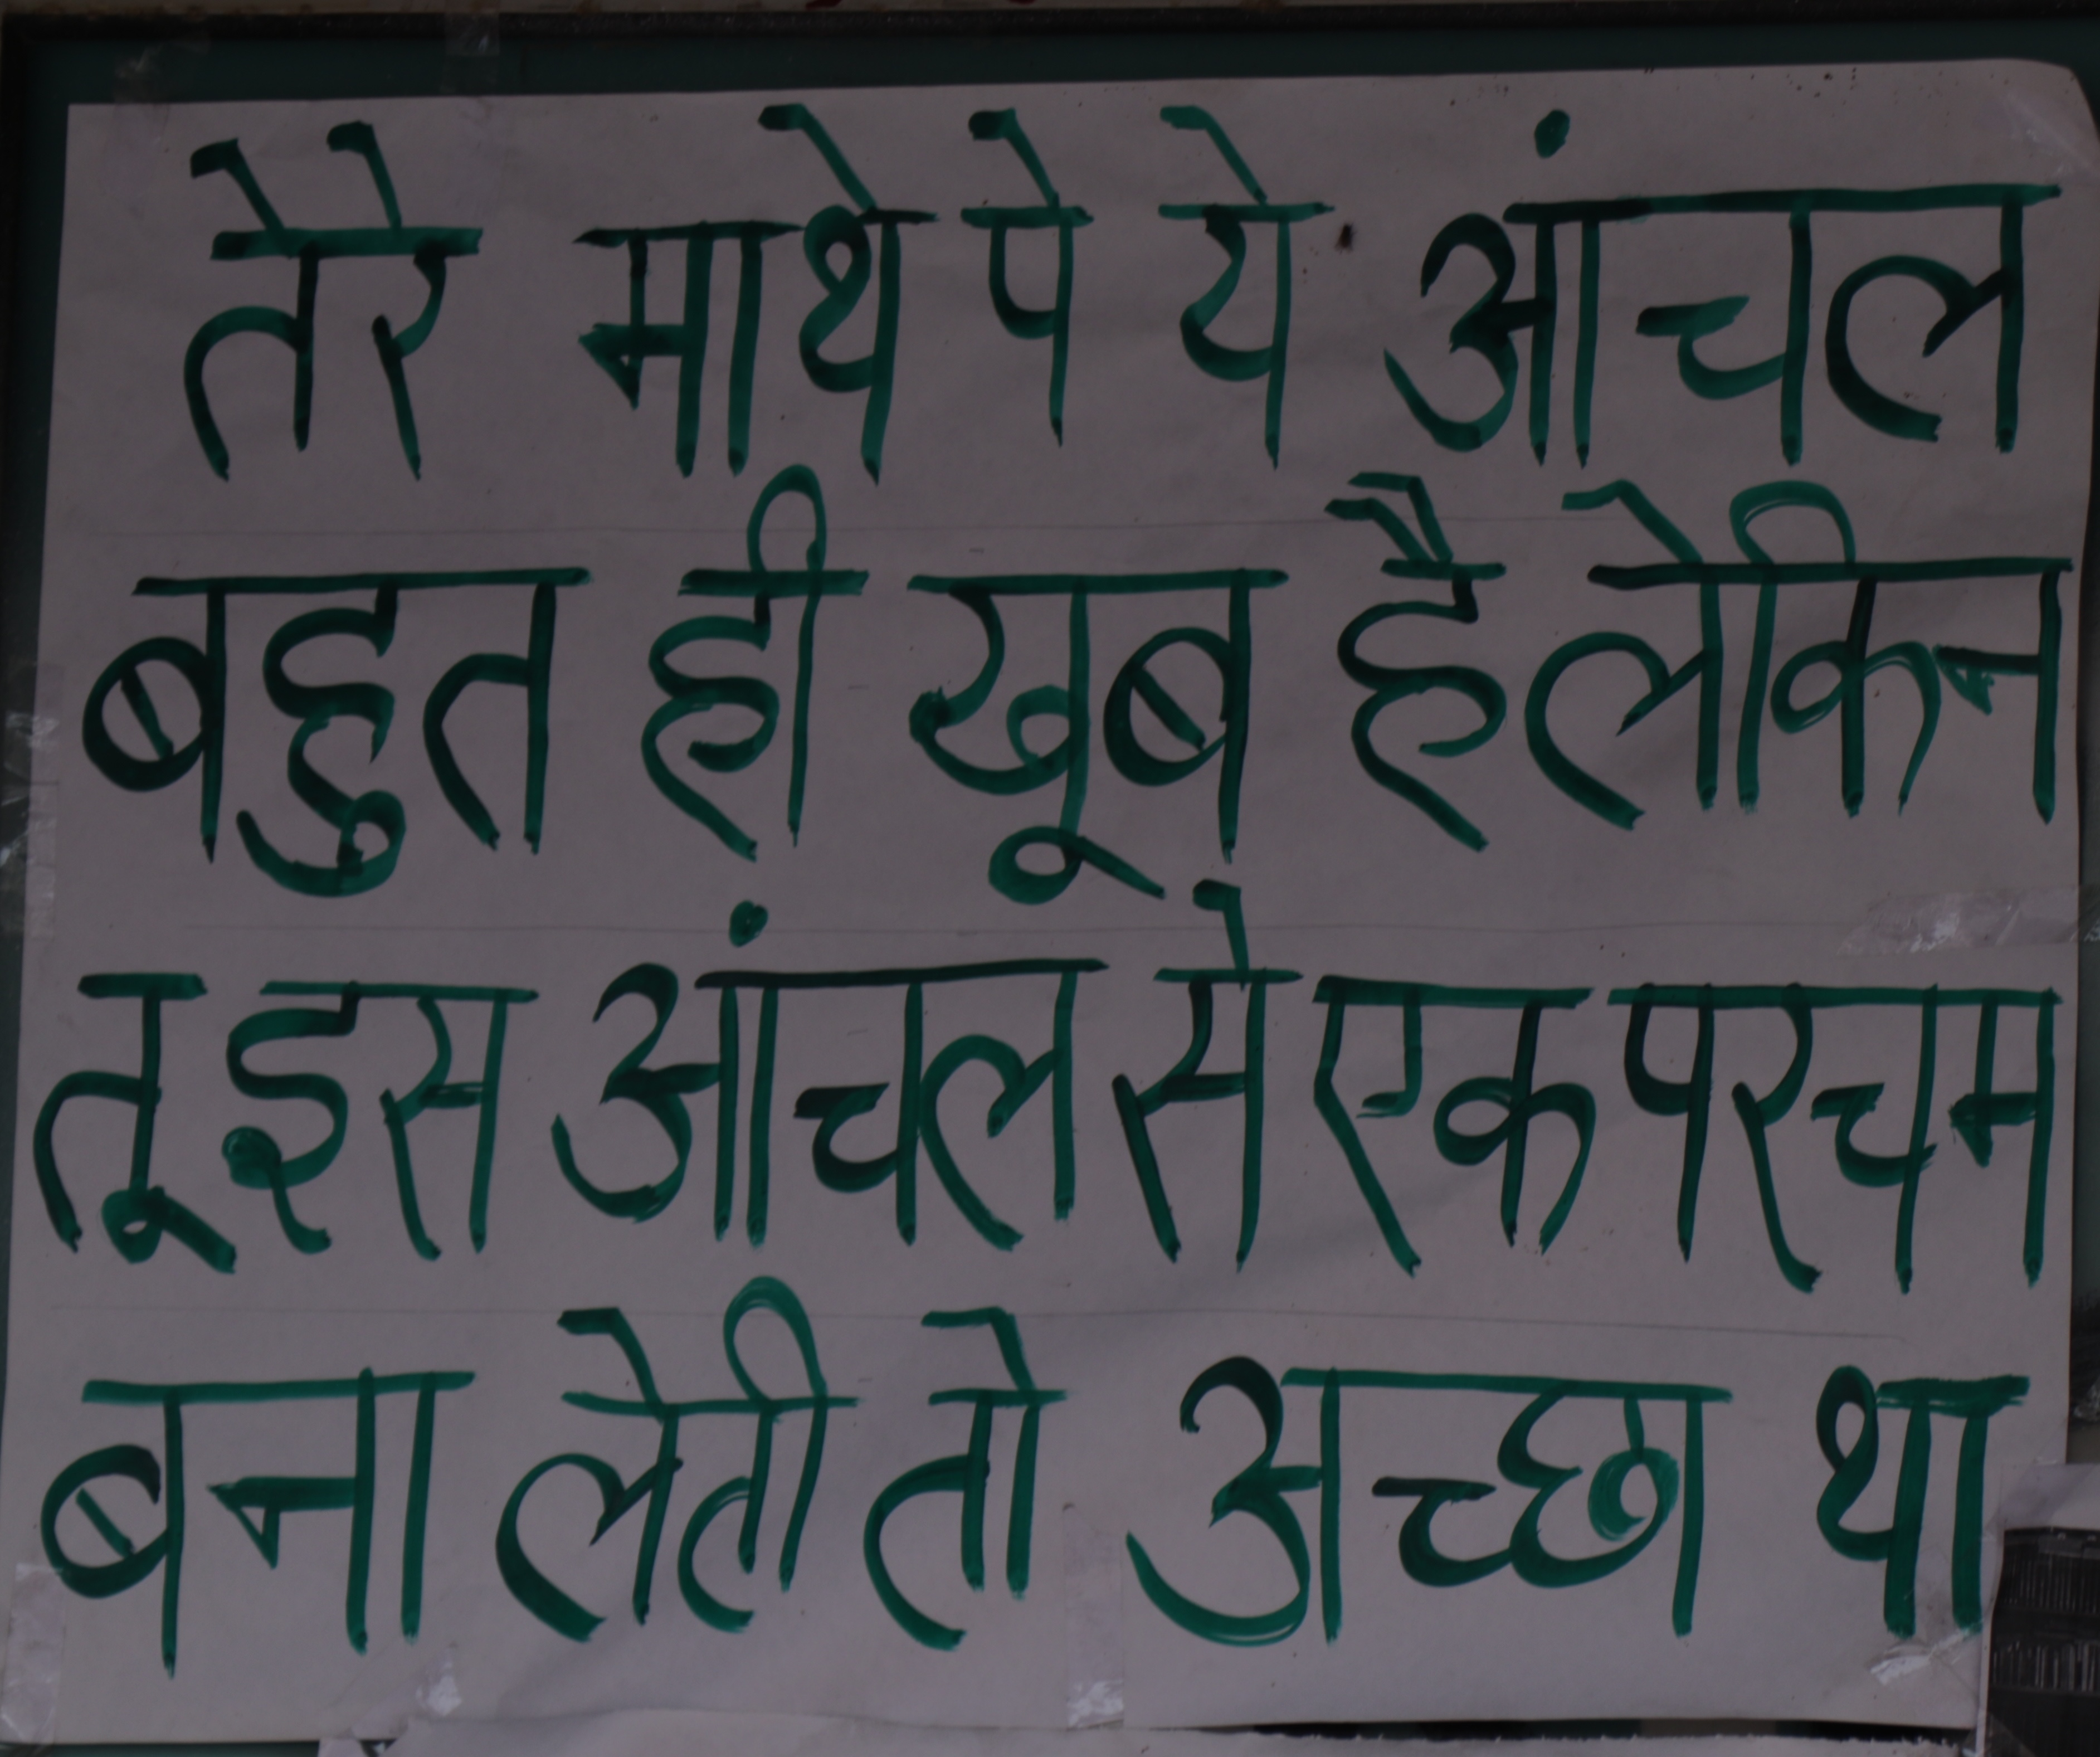 तेरे माथे पे ये आंचल
बहुत ही खूब है लेकिन
तू इस आंचल से एक परचम
बना लेती तो अच्छा था